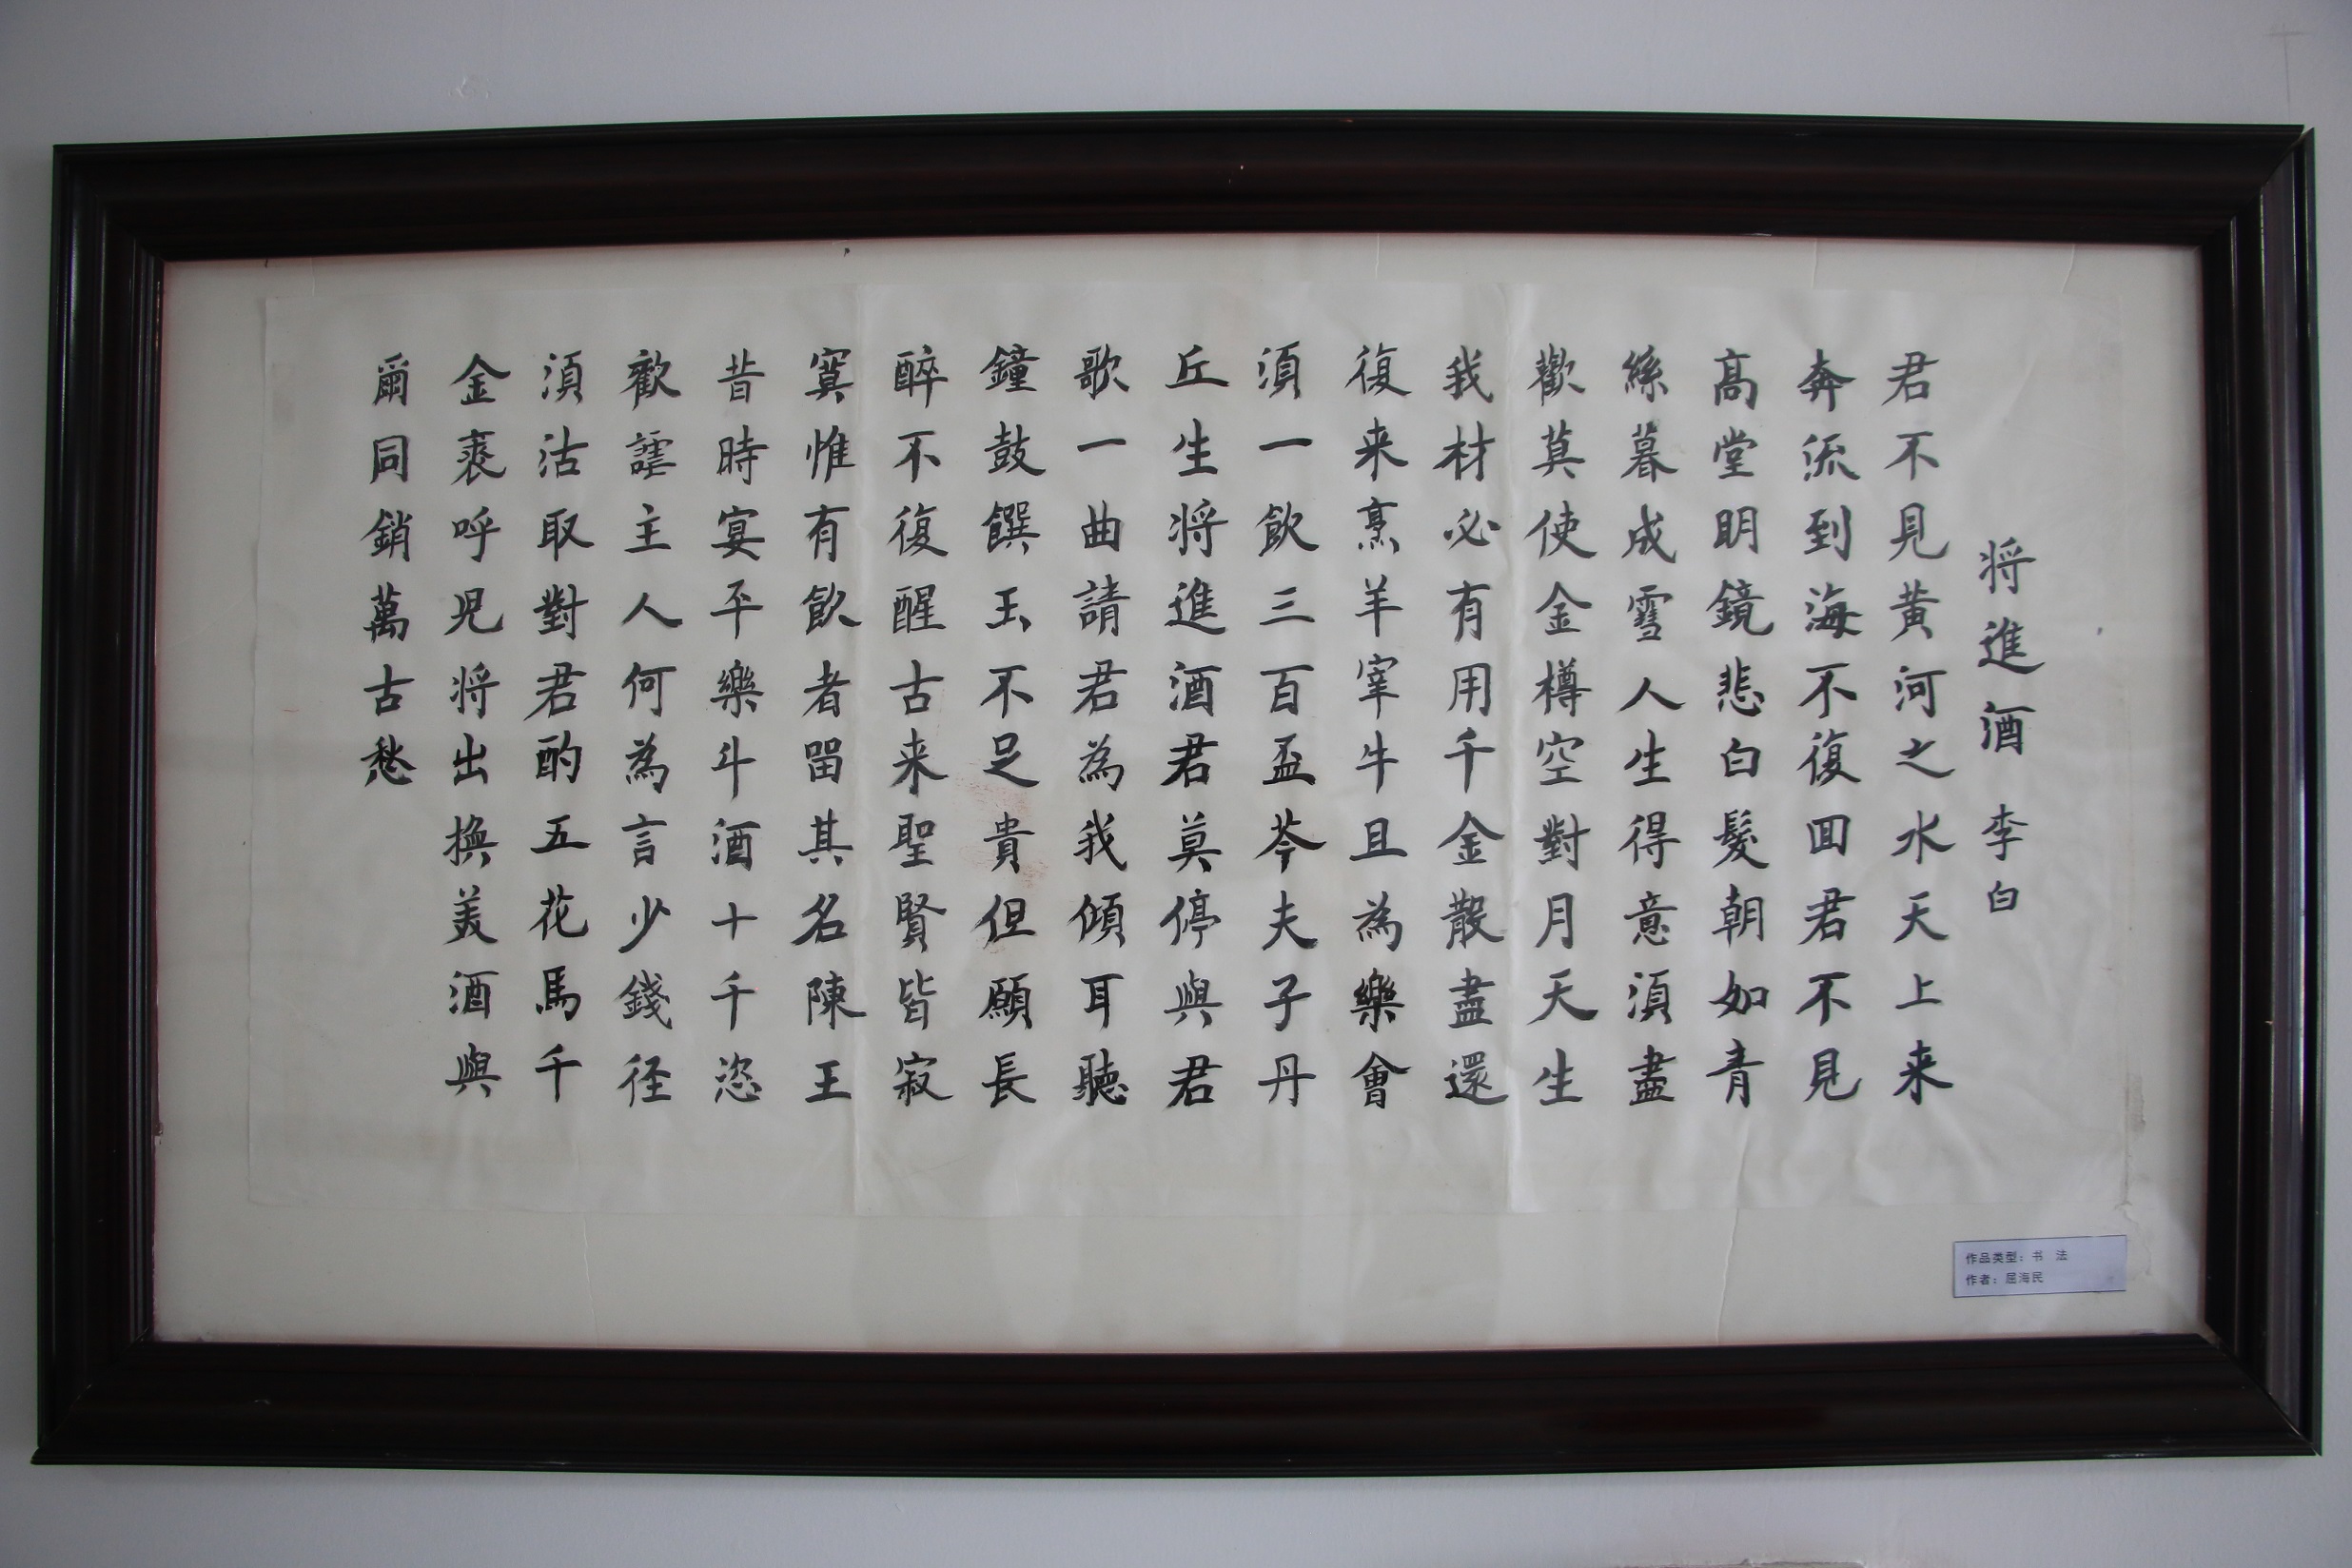 将進酒 李白
君不見黄河之水天上来
奔流到海不復回君不見
髙堂明鏡悲白髮朝如青
絲暮成雪人生得意須盡
歡莫使金樽空對月天生
我材必有用千金散盡還
復来烹羊宰牛且為樂會
須一飲三百盃岑夫子丹
丘生将進酒君莫停與君
歌一曲請君為我傾耳聽
鐘鼓饌玉不足貴但願長
醉不復醒古来聖賢皆寂
寞惟有飲者留其名陳王
昔時宴平樂斗酒十千恣
歡謔主人何為言少錢径
須沽取對君酌五花馬千
金裘呼児将出換美酒與
爾同銷萬古愁
作品类型：书 法
作者：屈海民